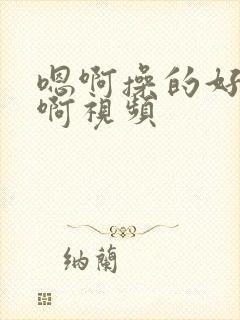 嗯啊操的好
啊視頻
納蘭